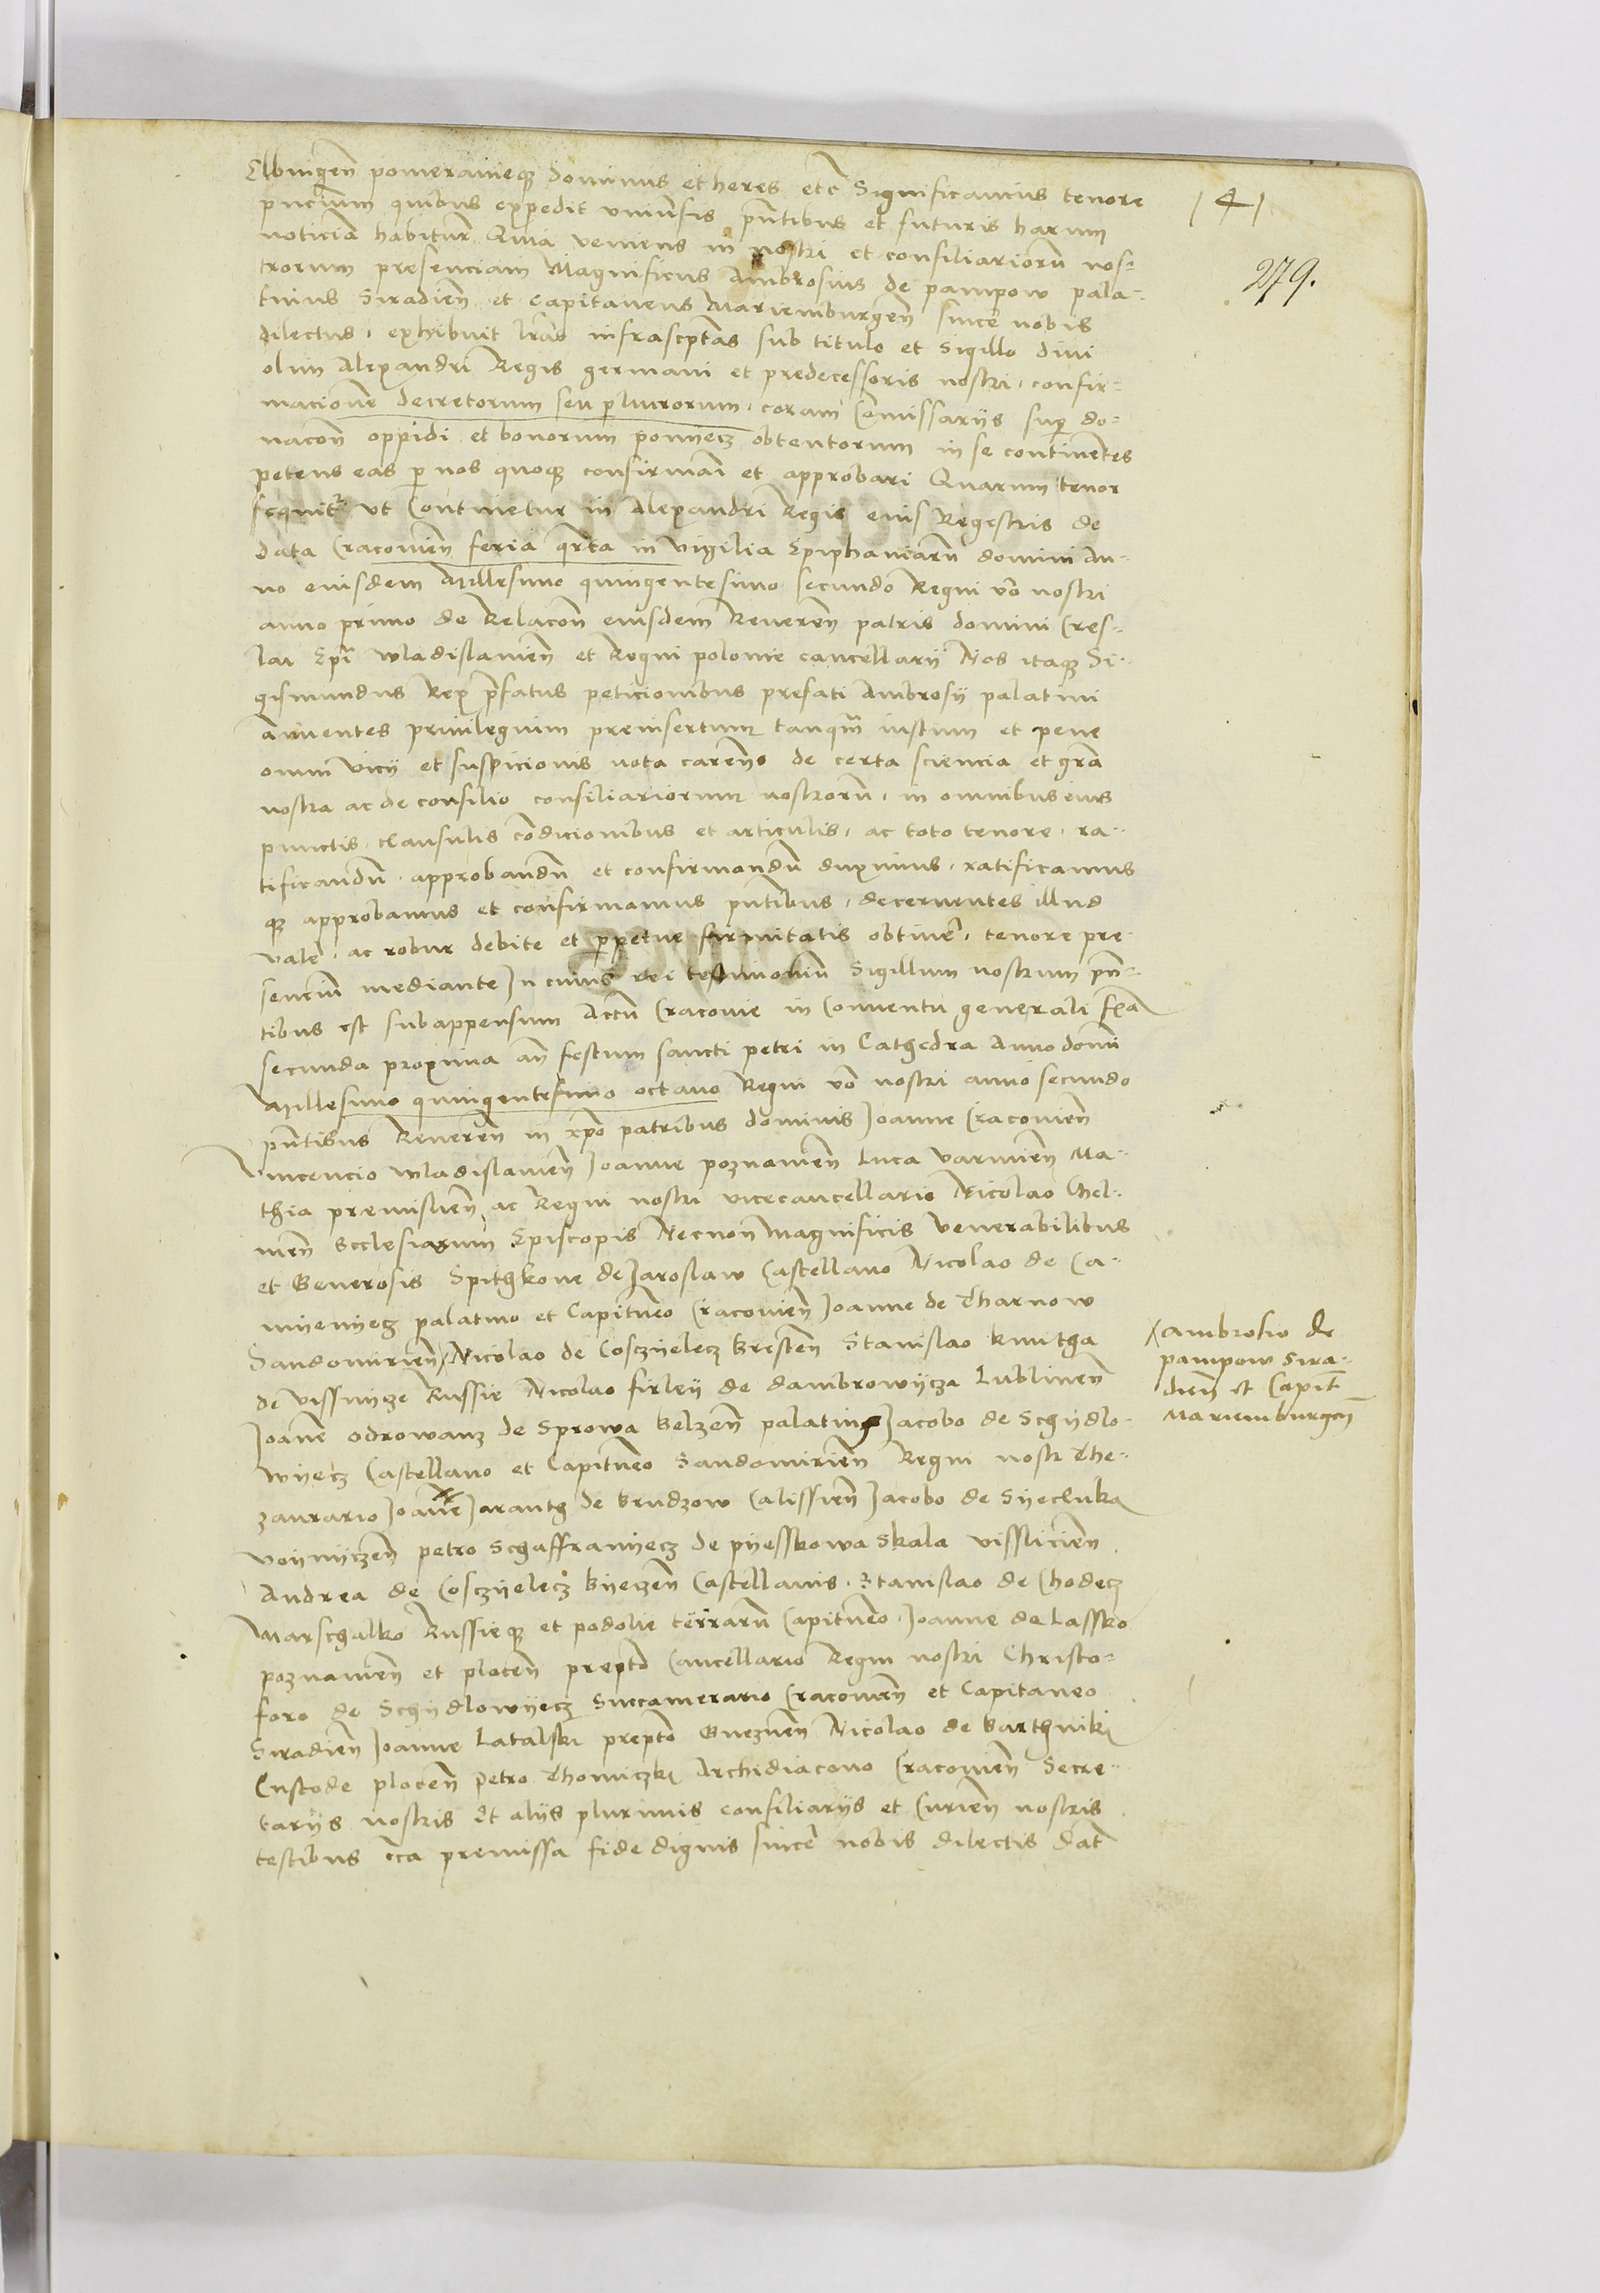 Elbingen̄ pomeranieqꝫ Dominus et heres etc̄ Significamus tenore
pn̄cium quibus expedit vniuersis pn̄tibus et futuris harum
noticiā habitur̄ Quia veniens in nostri et consiliariorū nos-
trorum presenciam Magnificus Ambrosius de pampow pala-
tinus Siradien̄ et Capitaneus Mariemburgen̄ sincer̄ nobis
dilectus, exhibuit lr̄as infrascptas sub titulo et Sigillo diui
olim Alexandri Regis germani et predecessoris nostri, confir-
macionē decretorum seu lucrorum, coram Comissarijs sup do-
nacōn oppidi et bonorum ponyecz obtentorum in se continentes
petens eas p nos quoqꝫ confirmari et approbari Quarum tenor
sequitr ut Continetur in Alexandri Regis eius Regestris de
data Cracouien̄ feria qrta in vigilia Epiphaniarū domini An-
no eiusdem Millesimo quingentesimo secundo Regni vo nostri
anno primo de Relacōn eiusdem Reueren̄ patris domini Cres-
lai Epi wladislauien̄ et Regni polonie cancellarij Nos itaqꝫ Si-
gismundus Rex p̄fatus peticionibus prefati Ambrosij palatini
annuentes priuilegium preinsertum tanqm̄ iustum et pene
omni vicij et suspicionis nota carens de certa sciencia et grā
nostra ac de consilio consiliariorum nostrorū, in omnibus eius
punctis, clausulis cōdicionibus et articulis, ac toto tenore, ra-
tificandū, approbandū et confirmandū duximus, ratificamus
qꝫ approbamus et confirmamus pn̄tibus, decernentes illud
valer̄, ac robur debite et ppetue firmitatis obtiner̄, tenore pre-
senciū mediante In cuius rei testimoniū Sigillum nostrum pn̄-
tibus est subappensum Actū Cracouie in Conuentu generali fr̄ia
secunda proxima an̄ festum sancti petri in Cathedra Anno domi
Millesimo quingentesimo octauo Regni vo nostri anno secundo
pn̄tibus Reueren̄ in xpo patribus dominis Joanne Cracouien̄
Vincencio wladislauien̄ Joanne poznanien̄ Luca varmien̄ Ma-
thia premislien̄ ac Regni nostri vicecancellario Nicolao Chel-
men̄ Ecclesiarum Episcopis Necnon magnificis Venerabilibus
et Generosis Spithkone de Jaroslaw Castellano Nicolao de Ca-
myenyecz palatino et Capitneo Cracouien̄ Joanne de Tharnow
Sandomirien̄ Nicolao de Cosczyelecz Bresten̄ Stanislao kmitha
de vissnycze Russie Nicolao firleij de dambrowijcza Lublinen̄
Joann̄e odrowanz de Sprowa Belzen̄ palatinis Jacobo de Schydlo-
wyecz Castellano et Capitneo Sandomirien̄ Regni nostri The-
zaurario Joanne Jaranth de Brudzow Calissien̄ Jacobo de Syecluka
voijnyczen̄ petro Schaffranyecz de pyesskowa Skala visslicien̄
Andrea de Cosczyelecz Byeczen̄ Castellanis, Stanislao de Chodecz
Marschalko Russieqꝫ et podolie terrarū Capitneo, Joanne de Lassko
poznanien̄ et plocen̄ prepto Cancellario Regni nostri Christo-
foro de Schydlowyecz Succamerario Cracouien̄ et Capitaneo
Siradien̄ Joanne Latalski prepto Gneznen̄ Nicolao de Barthniki
Custode plocen̄ petro Thomiczki Archidiacono Cracouien̄ Secre-
tarijs nostris Et alijs plurimis consiliarijs et Curien̄ nostris
testibus circa premissa fide dignis sincer̄ nobis dilectis Dat̄
141
279.
ambrosio de
pampow sira-
dien̄ et Capit̄
Mariemburgen̄